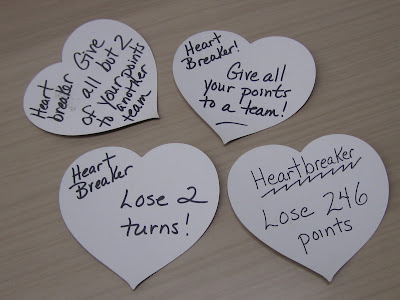 Heart
breaker
Give
all but 2
of your points
to another
team
Heart
Breaker!
Give all
your points
to a team!
Heart
Breaker
Lose 2
turns!
Heartbreaker
Lose 246
points